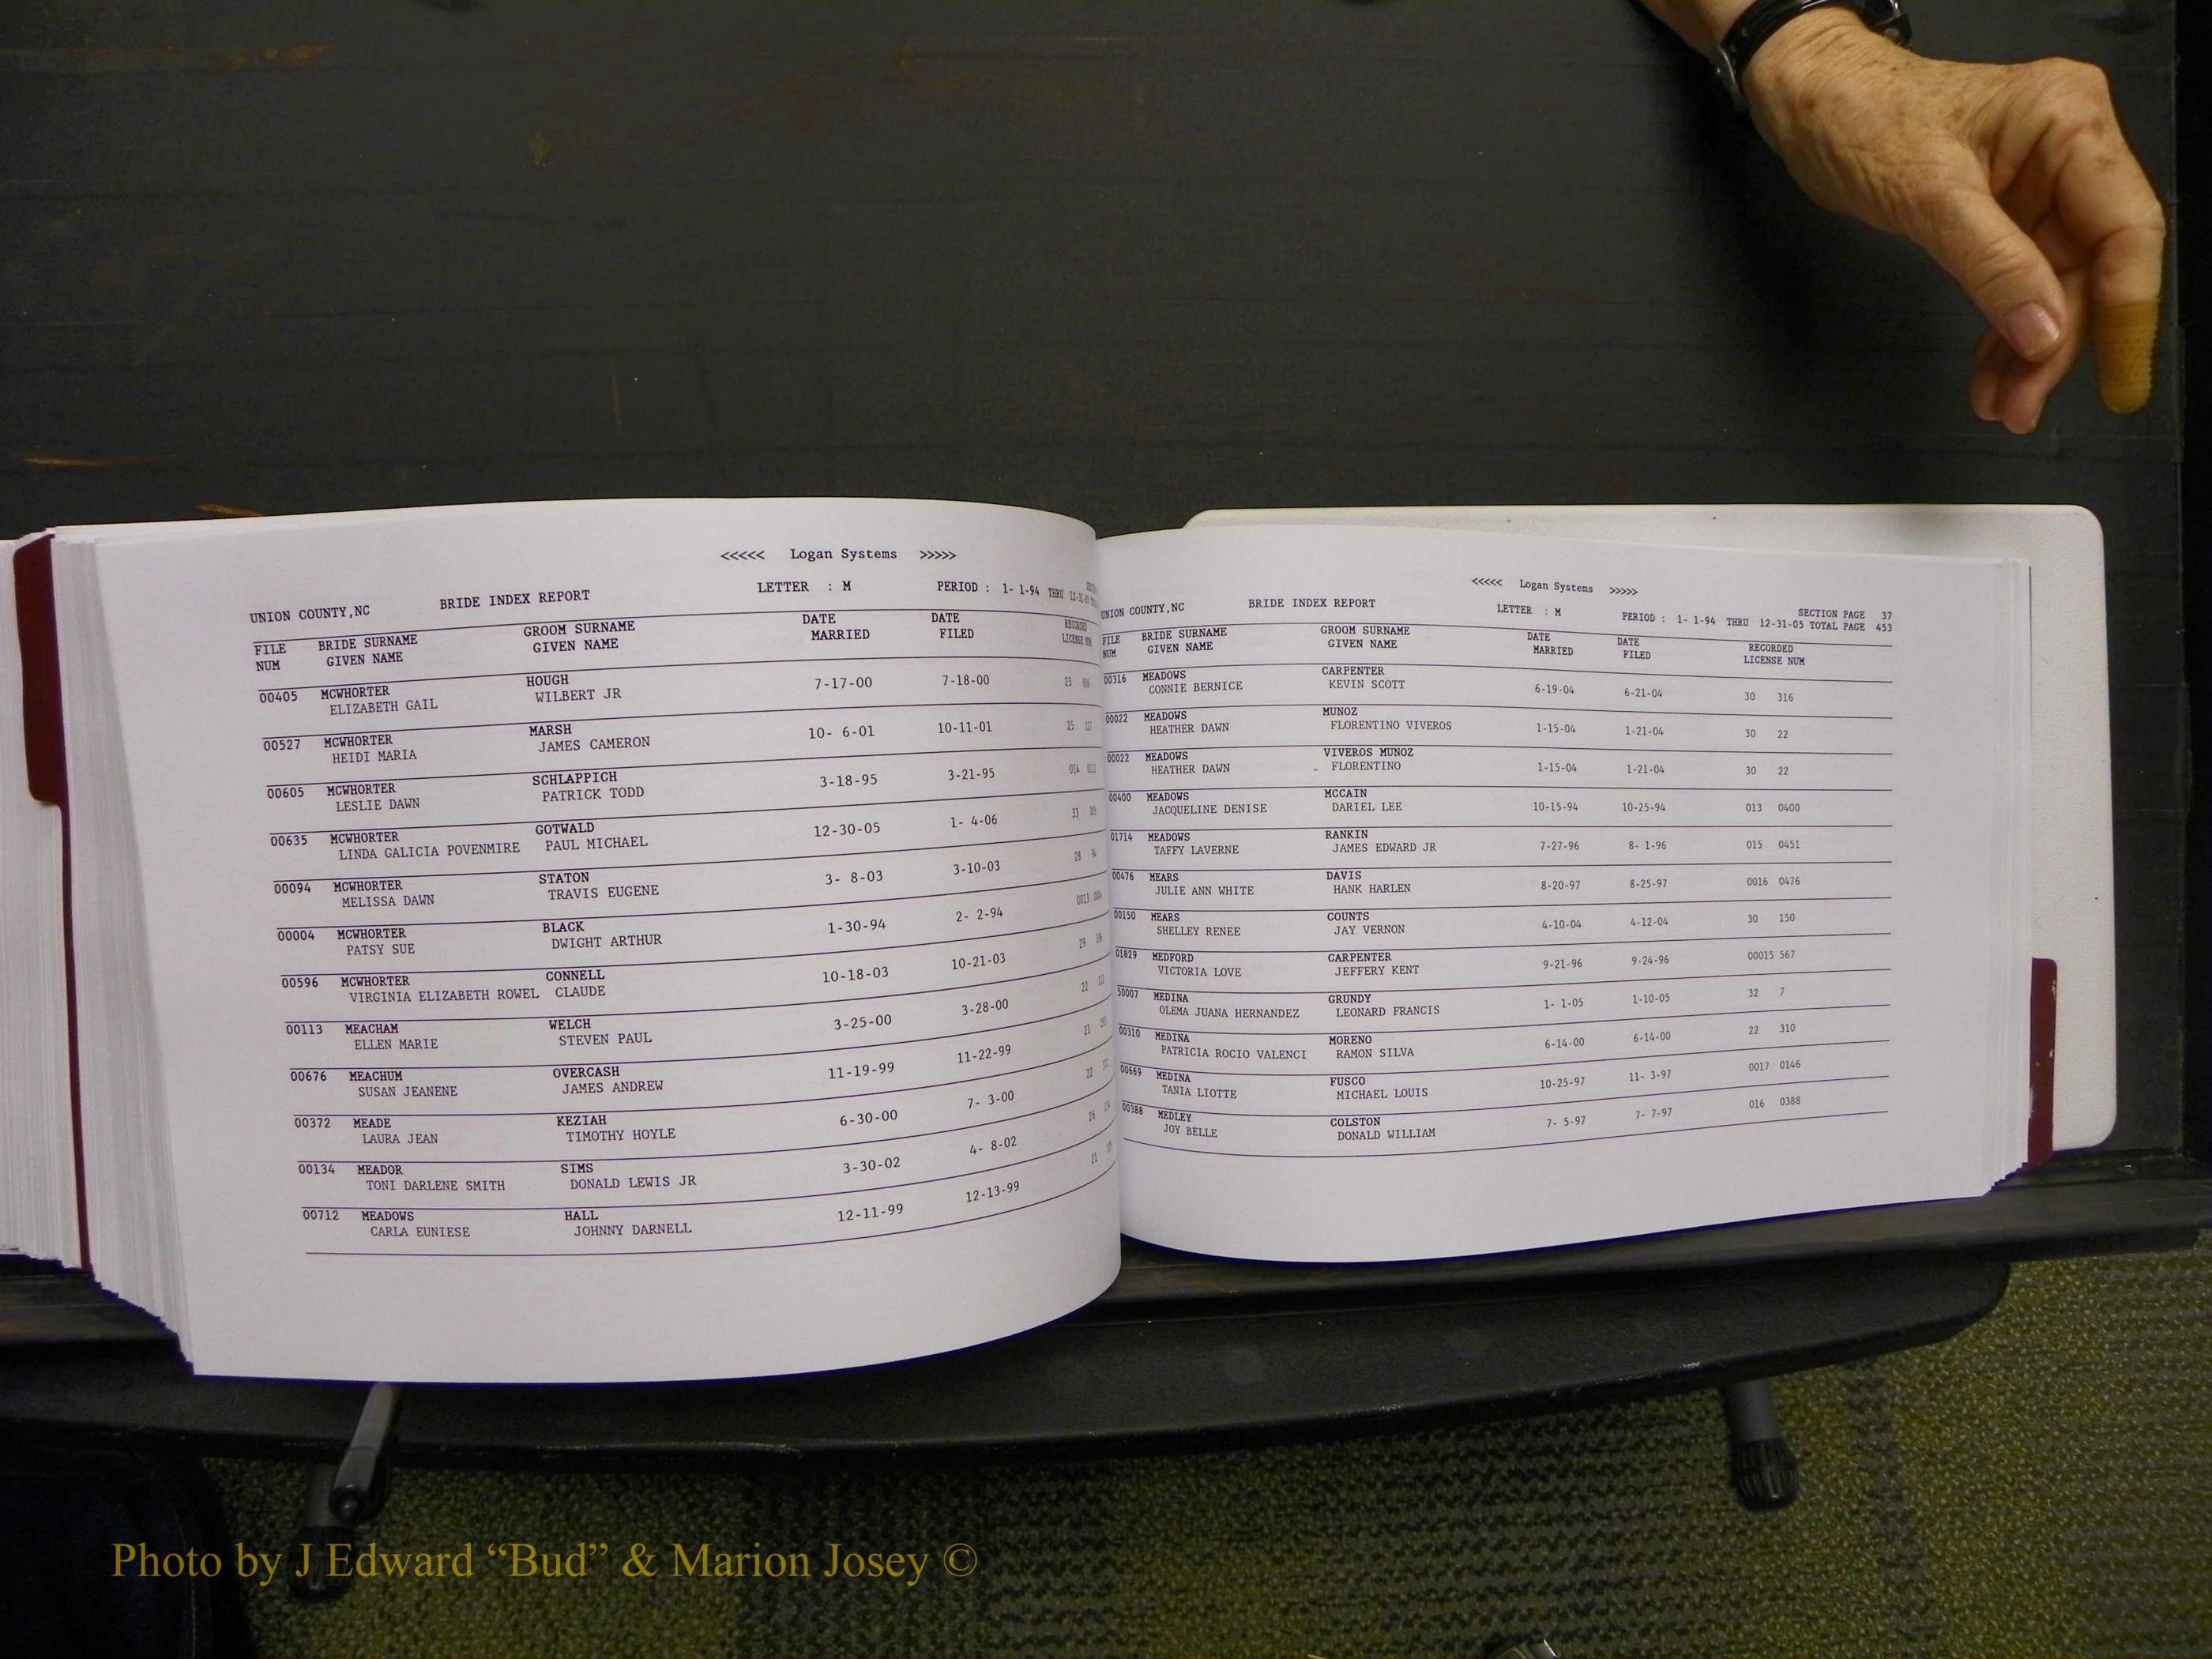 <<<<< Logan Systems >>>>>
UNION COUNTY,NC BRIDE INDEX REPORT LETTER : M PERIOD : 1- 1-94 THRU
FILE BRIDE SURNAME GROOM SURNAME DATE DATE RECORDED
NUM GIVEN NAME GIVEN NAME MARRIED FILED LICENSE NUM
00405 MCWHORTER HOUGH 7-17-00 7-18-00 23
ELIZABETH GAIL WILBERT JR
00527 MCWHORTER MARSH 10- 6-01 10-11-01 25
HEIDI MARIA JAMES CAMERON
00605 MCWHORTER SCHLAPPICH 3-18-95 3-21-95 014
LESLIE DAWN PATRICK TODD
00635 MCWHORTER GOTWALD 12-30-05 1- 4-06 33
LINDA GALICIA POVENMIRE PAUL MICHAEL
00094 MCWHORTER STATON 3- 8-03 3-10-03 28
MELISSA DAWN TRAVIS EUGENE
00004 MCWHORTER BLACK 1-30-94 2- 2-94 0013
PATSY SUE DWIGHT ARTHUR
00596 MCWHORTER CONNELL 10-18-03 10-21-03 29
VIRGINIA ELIZABETH ROWEL CLAUDE
00113 MEACHAM WELCH 3-25-00 3-28-00 22
ELLEN MARIE STEVEN PAUL
00676 MEACHUM OVERCASH 11-19-99 11-22-99 21
SUSAN JEANENE JAMES ANDREW
00372 MEADE KEZIAH 6-30-00 7- 3-00 22
LAURA JEAN TIMOTHY HOYLE
00134 MEADOR SIMS 3-30-02 4- 8-02 26
TONI DARLENE SMITH DONALD LEWIS JR
00712 MEADOWS HALL 12-11-99 12-13-99 21
CARLA EUNIESE JOHNNY DARNELL
<<<<< Logan Systems >>>>>
UNION COUNTY,NC BRIDE INDEX REPORT LETTER : M PERIOD : 1- 1-94 THRU 12-31-05 SECTION PAGE 37
TOTAL PAGE 453
FILE BRIDE SURNAME GROOM SURNAME DATE DATE RECORDED
NUM GIVEN NAME GIVEN NAME MARRIED FILED LICENSE NUM
00316 MEADOWS CARPENTER 6-19-04 6-21-04 30 316
CONNIE BERNICE KEVIN SCOTT
00022 MEADOWS MUNOZ 1-15-04 1-21-04 30 22
HEATHER DAWN FLORENTINO VIVEROS
00022 MEADOWS VIVEROS MUNOZ 1-15-04 1-21-04 30 22
HEATHER DAWN FLORENTINO
00400 MEADOWS MCCAIN 10-15-94 10-25-94 013 0400
JACQUELINE DENISE DARIEL LEE
01714 MEADOWS RANKIN 7-27-96 8- 1-96 015 0451
TAFFY LAVERNE JAMES EDWARD JR
00476 MEARS DAVIS 8-20-97 8-25-97 0016 0476
JULIE ANN WHITE HANK HARLEN
00150 MEARS COUNTS 4-10-04 4-12-04 30 150
SHELLEY RENEE JAY VERNON
01829 MEDFORD CARPENTER 9-21-96 9-24-96 00015 567
VICTORIA LOVE JEFFERY KENT
50007 MEDINA GRUNDY 1- 1-05 1-10-05 32 7
OLEMA JUANA HERNANDEZ LEONARD FRANCIS
00310 MEDINA MORENO 6-14-00 6-14-00 22 310
PATRICIA ROCIO VALENCI RAMON SILVA
00669 MEDINA FUSCO 10-25-97 11- 3-97 0017 0146
TANIA LIOTTE MICHAEL LOUIS
00388 MEDLEY COLSTON 7- 5-97 7- 7-97 016 0388
JOY BELLE DONALD WILLIAM
Photo by J Edward “Bud” & Marion Josey ©